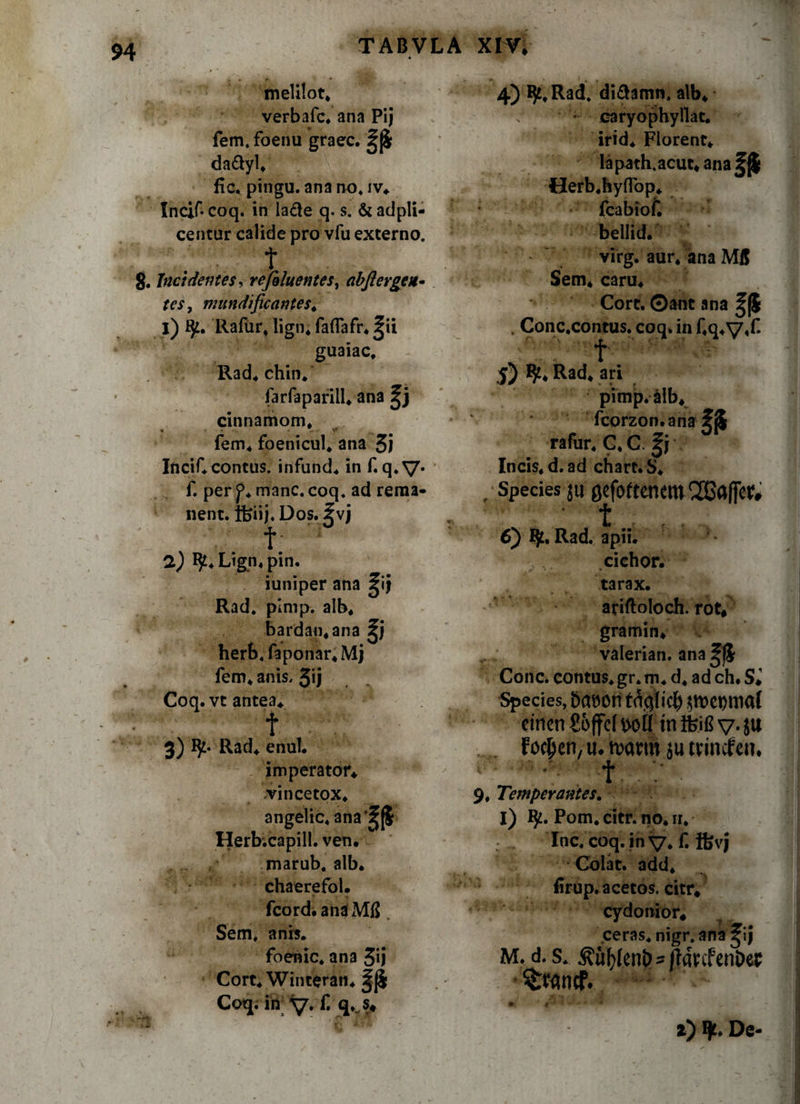 94
TABVLA XIV.
melilot.
verbaſc. ana Pij
ſem. foenu graec. ℥ß
dactyl.
fic. pingu. ana no. iv.
Inciſ. coq. in lacte q. s. & adpli-
centur calide pro vſu externo.
†
8. Incidentes, reſoluentes, abſtergen-
tes, mundificantes.
1) ℞. Raſur. lign. ſaſſafr. ℥ii
guaiac.
Rad. chin.
ſarſaparill. ana ℥j
cinnamom.
ſem. foenicul. ana ʒj
Inciſ. contus. infund. in ſ. q. ▽.
ſ. per ƒ. manc. coq. ad rema-
nent. ℔iij. Dos. ℥vj
†
2) ℞. Lign. pin.
iuniper ana ℥ij
Rad. pimp. alb.
bardan. ana ℥j
herb. ſaponar. Mj
ſem. anis. ʒij
Coq. vt antea.
†
3) ℞. Rad. enul.
imperator.
vincetox.
angelic. ana ℥ß
Herb. capill. ven.
marub. alb.
chaerefol.
ſcord. ana Mß
Sem. anis.
foenic. ana ʒij
Cort. Winteran. ℥ß
Coq. in ▽. ſ. q. s.
4) ℞. Rad. dictamn. alb.
caryophyllat.
irid. Florent.
lapath. acut. ana ℥ß
Herb. hyſſop.
ſcabioſ.
bellid.
virg. aur. ana Mß
Sem. caru.
Cort. ⊙ant ana ℥ß
Conc. contus. coq. in ſ. q. ▽. ſ.
†
5) ℞. Rad. ari
pimp. alb.
ſcorzon. ana ℥ß
raſur. C. C. ℥j
Incis. d. ad chart. S.
Species zu geſottenem Waſſer.
†
6) ℞. Rad. apii.
cichor.
tarax.
ariſtoloch. rot.
gramin.
valerian. ana ℥ß
Conc. contus. gr. m. d. ad ch. S.
Species, davon täglich zweymal
einen Löffel voll in ℔iß ▽. zu
kochen, u. warm zu trincken.
†
9. Temperantes.
1) ℞. Pom. citr. no. ii.
Inc. coq. in ▽. ſ. ℔vj
Colat. add.
ſirup. acetos. citr.
cydonior.
ceras. nigr. ana ℥ij
M. d. S. Kühlend = ſtärckender
Tranck.
2) ℞. De-